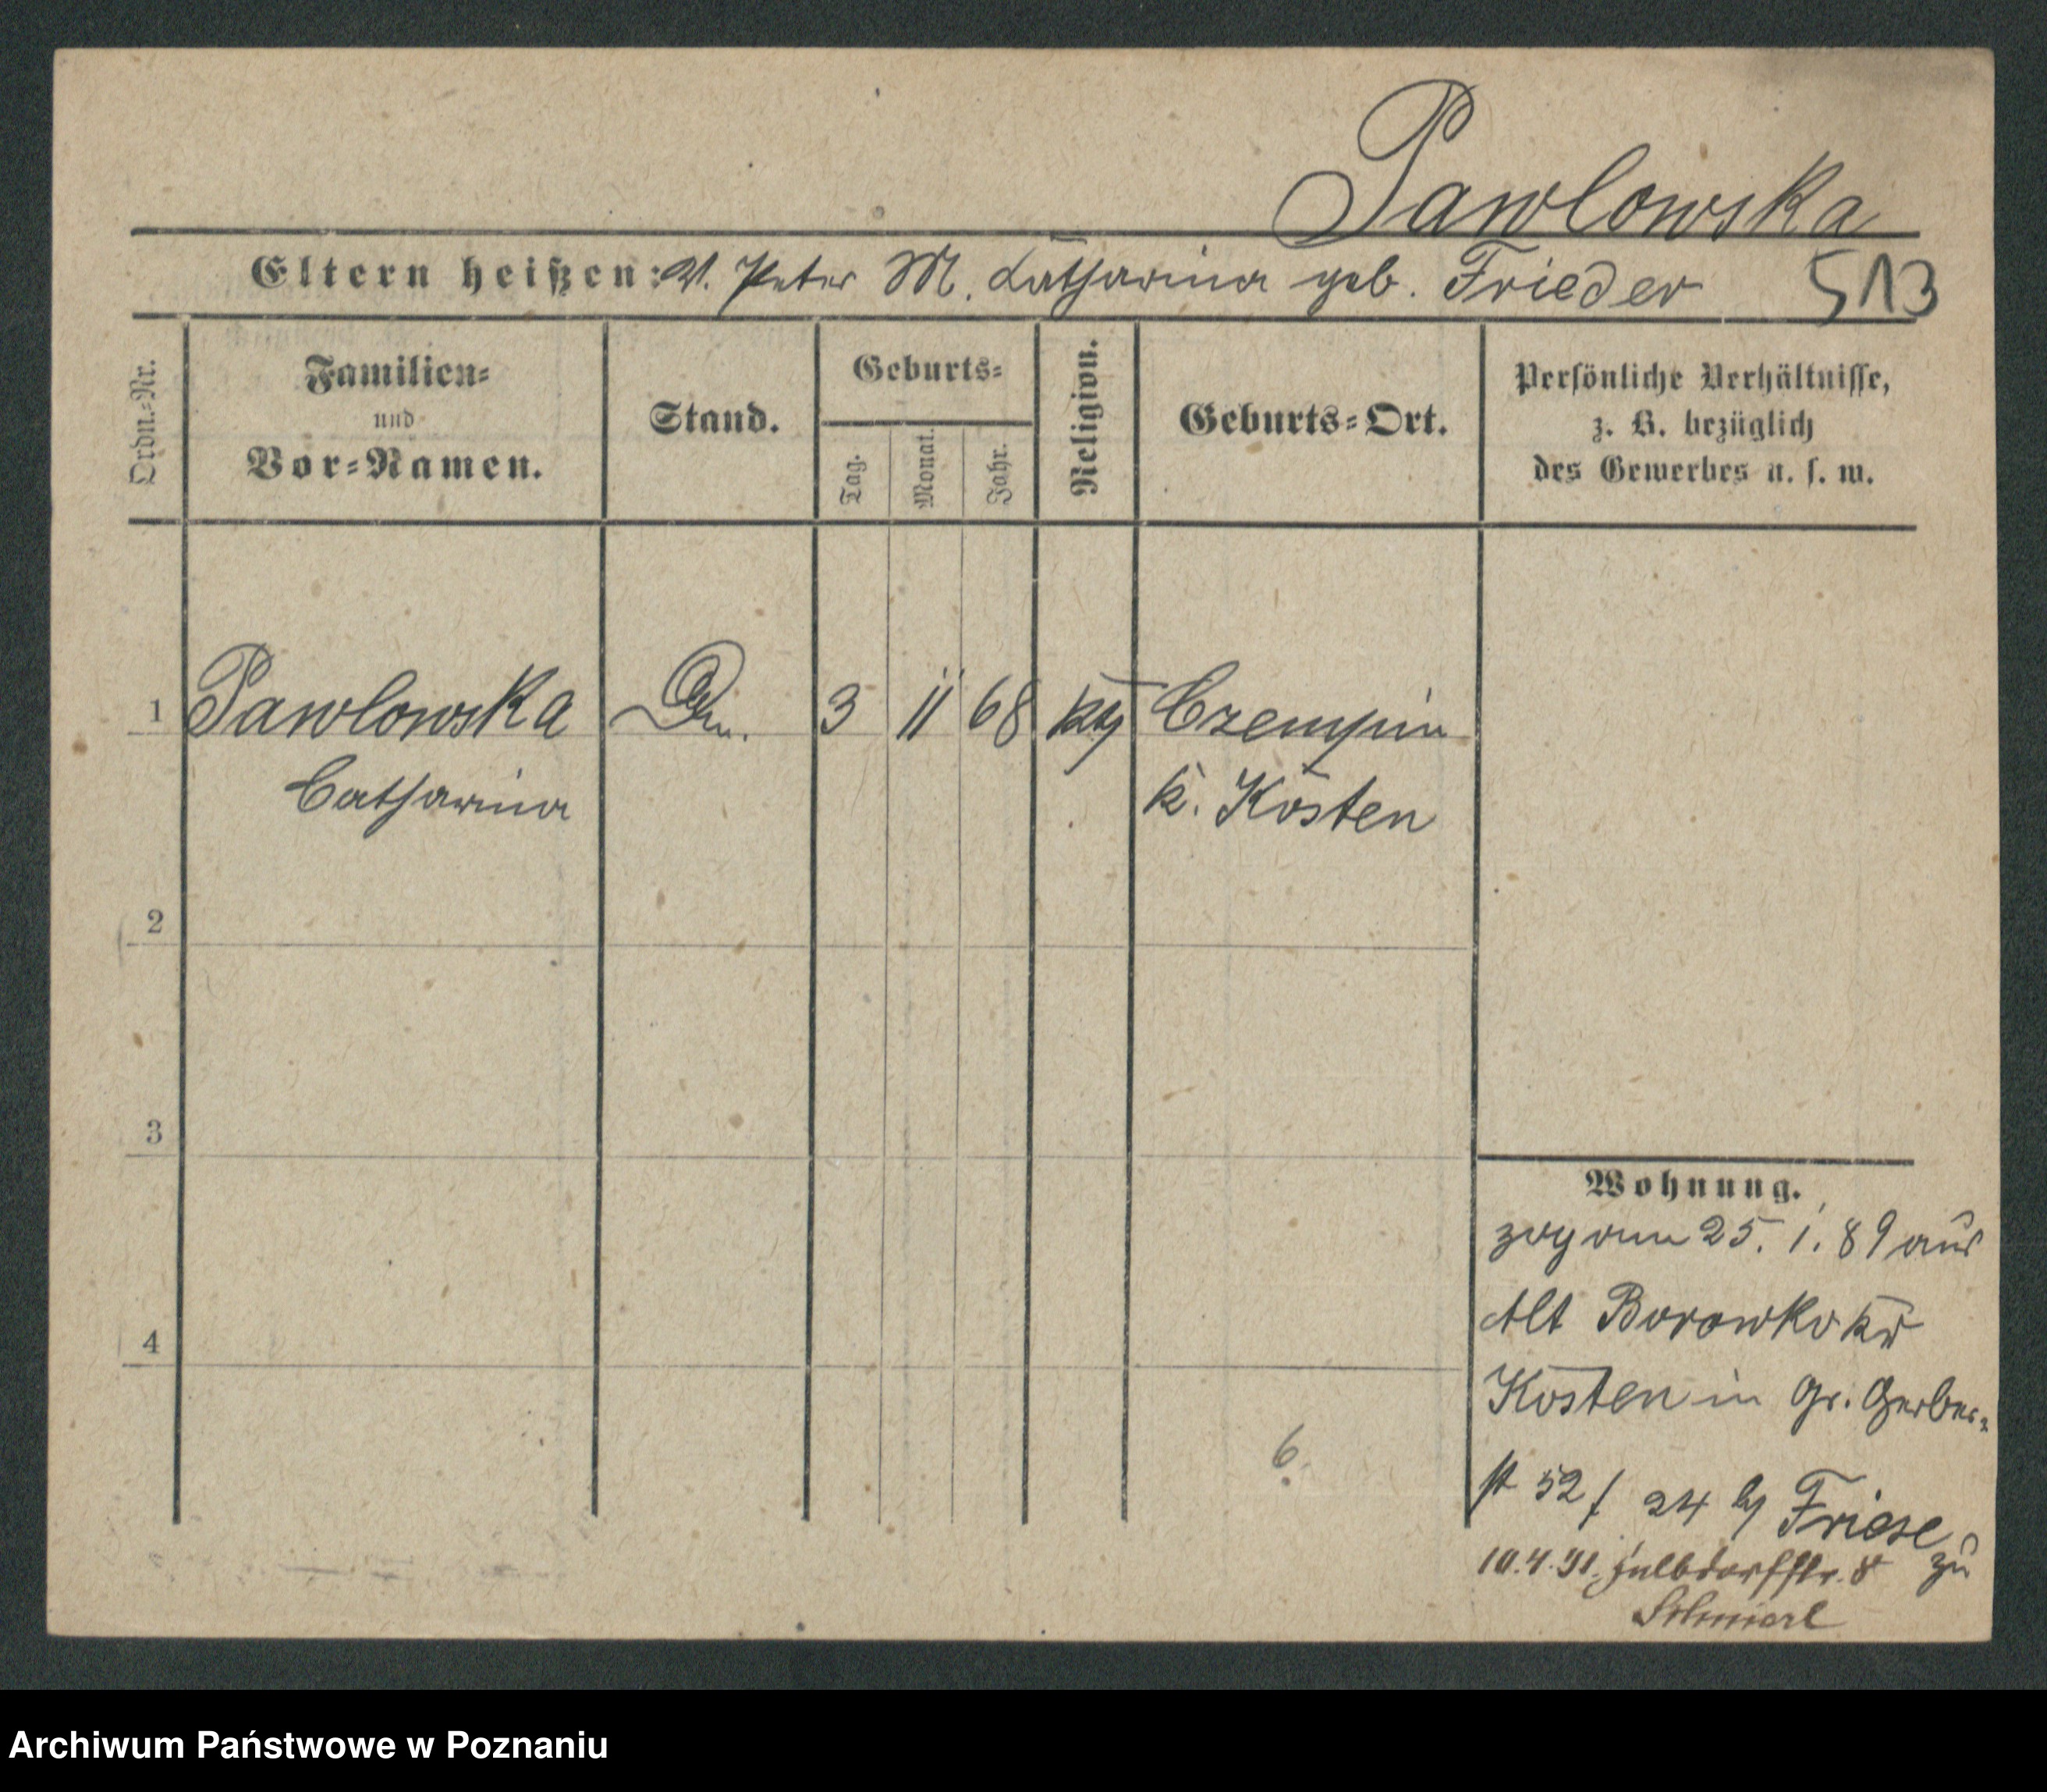 Pawlowska
Eltern heißen: V. Peter M. Catharina geb. Frieder 513
Ordn.-Nr.
Familien-
und
Vor-Namen.
Stand.
Geburts-
Tag.
Monat.
Jahr.
Religion.
Geburts-Ort.
Persönliche Verhältnisse,
z. B. bezüglich
des Gewerbes u. s. w.
1 Pawlowska 3 11 68 kth Czempin
Catharina K. Kosten
2
3
4
Wohnung.
zog am 25. 1. 89 aus
Alt Borowko Kr
Kosten in Gr. Gerber-
st 52 / 24 by Friese
10.4.91. Halbdorfstr. 8 zu
6.
Archiwum Państwowe w Poznaniu